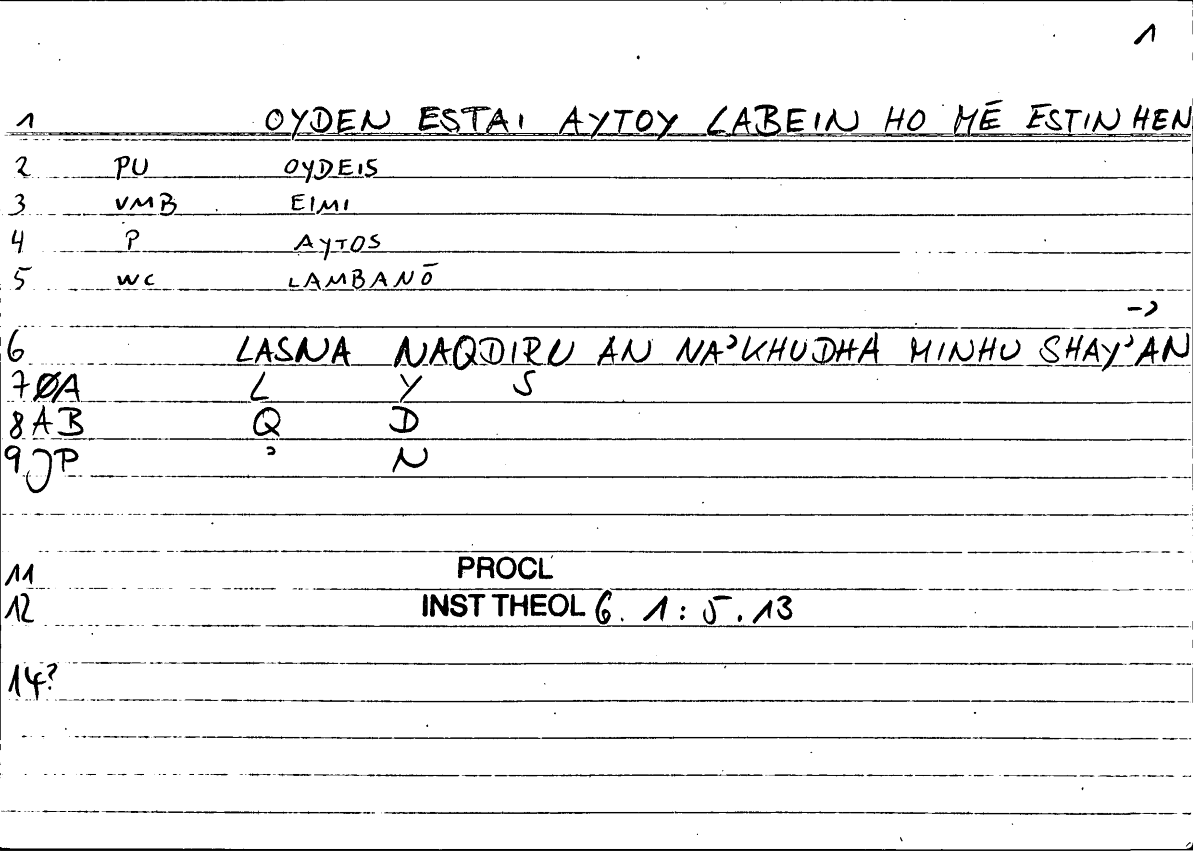 1
1 OYDEN ESTAI AYTOY LABEIN HO MĒ ESTIN HEN
2 PU OYDEIS
3 VMB EIMI
4 P AYTOS
5 WC LAMBANŌ
->
6 LASNA NAQDIRU AN NA'KHUDHA MINHU SHAY'AN
7 ØA L Y S
8 AB Q D
9 JP ' N
11 PROCL
12 INST THEOL 6. 1: 5. 13
14?